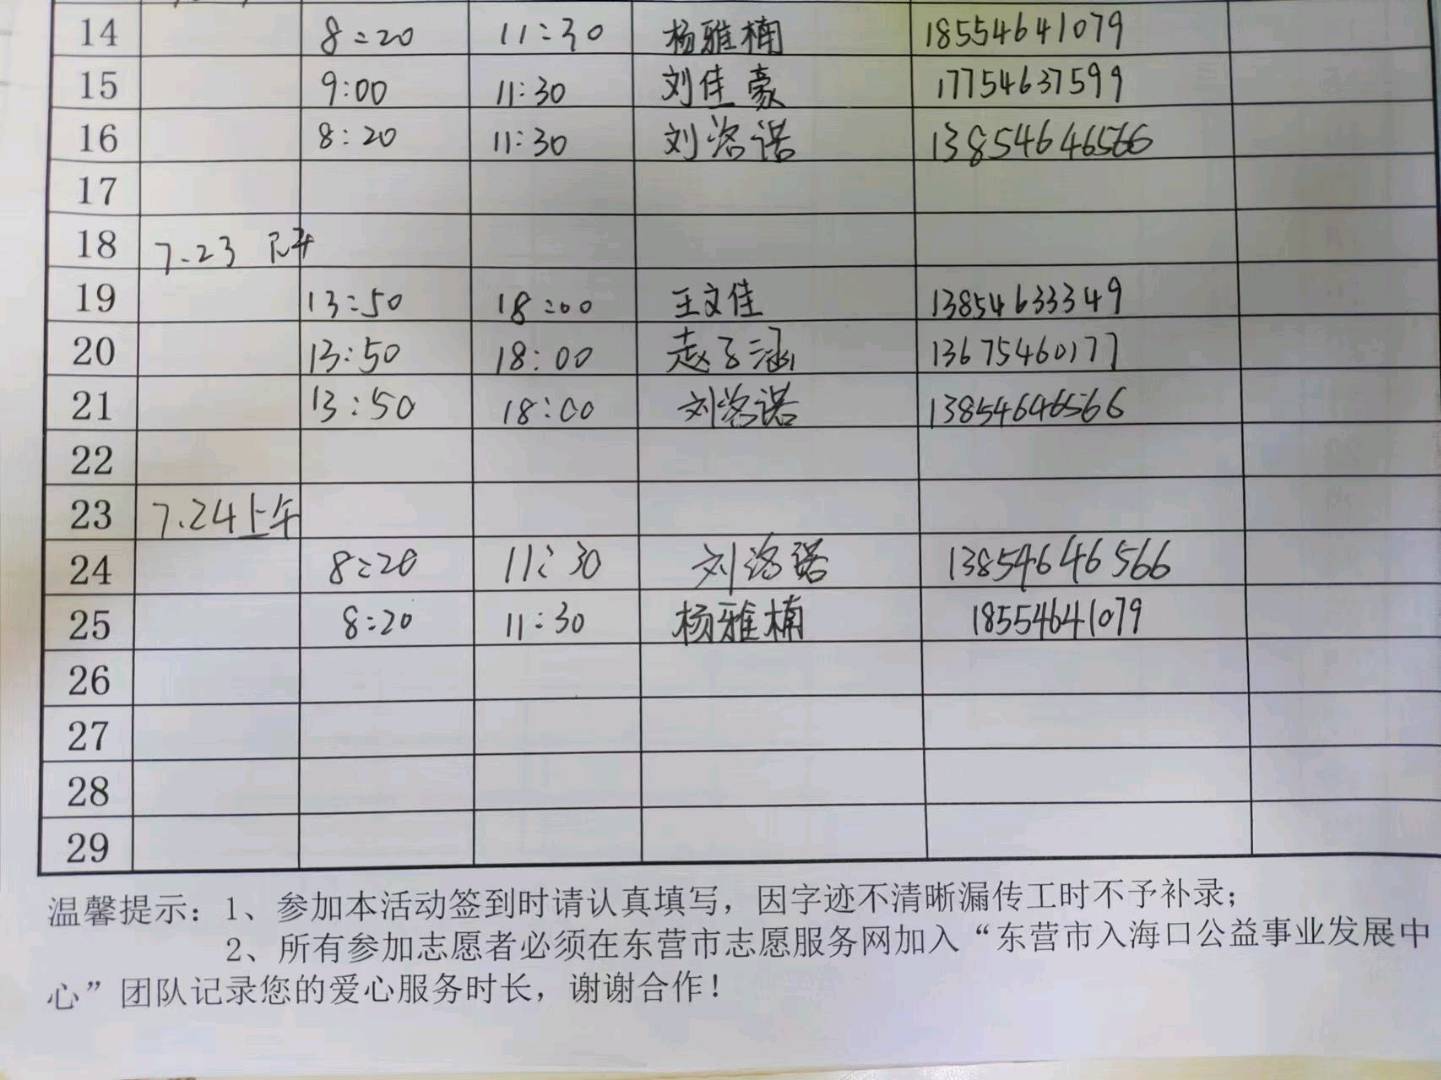 14 8:20 11:30 杨雅楠 18554641079
15 9:00 11:30 刘佳豪 17754637599
16 8:20 11:30 刘洺诺 13854646566
17
18 7.23 下午
19 13:50 18:00 王文佳 13854633349
20 13:50 18:00 赵子涵 13675460177
21 13:50 18:00 刘洺诺 13854646566
22
23 7.24上午
24 8:20 11:30 刘洺诺 13854646566
25 8:20 11:30 杨雅楠 18554641079
26
27
28
29
温馨提示：1、参加本活动签到时请认真填写，因字迹不清晰漏传工时不予补录；
2、所有参加志愿者必须在东营市志愿服务网加入“东营市入海口公益事业发展中
心”团队记录您的爱心服务时长，谢谢合作！